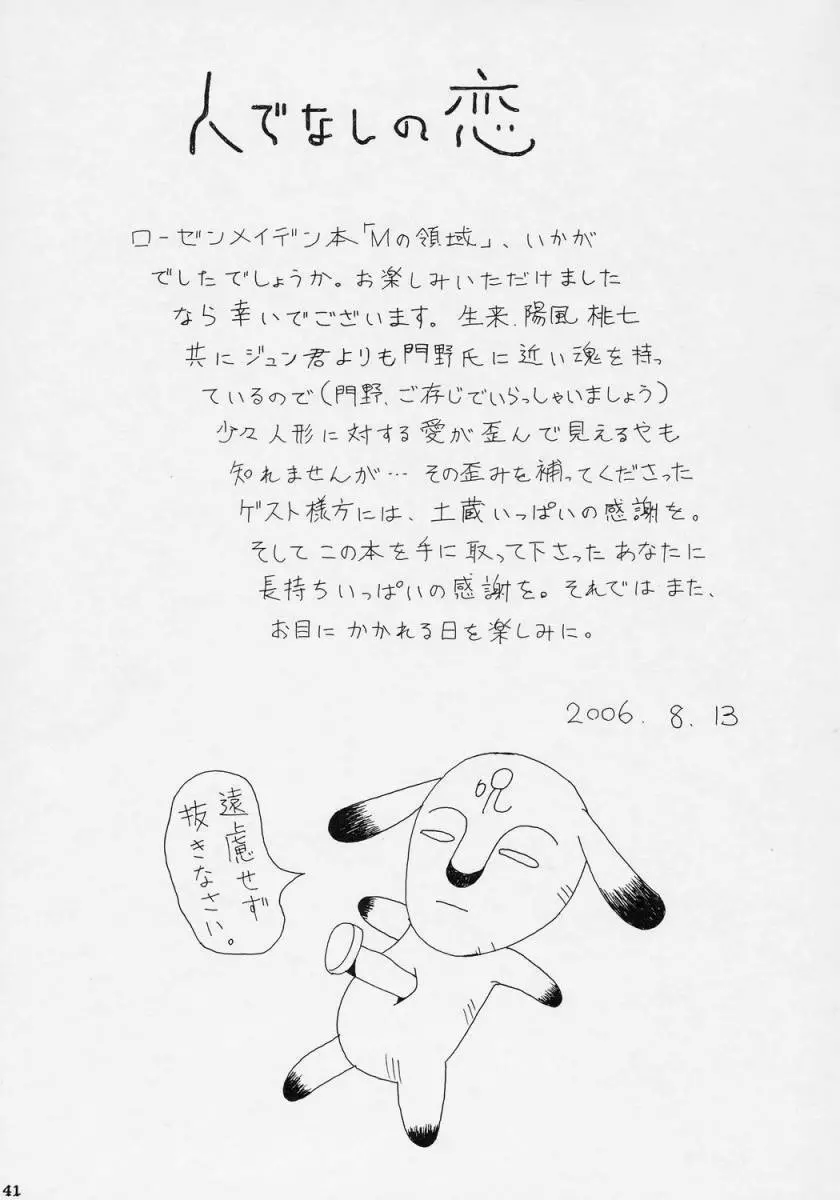 人でなしの恋
ローゼンメイデン本「Mの領域」、いかが
でしたでしょうか。お楽しみいただけました
なら幸いでございます。生来、陽風 桃七
共にジュン君よりも門野氏に近い魂を持っ
ているので(門野、ご存じでいらっしゃいましょう)
少々人形に対する愛が歪んで見えるやも
知れませんが… その歪みを補ってくださった
ゲスト様方には、土蔵いっぱいの感謝を。
そしてこの本を手に取って下さったあなたに
長持ちいっぱいの感謝を。それではまた、
お目にかかれる日を楽しみに。
2006. 8. 13
呪
遠慮せず
抜きなさい。
41